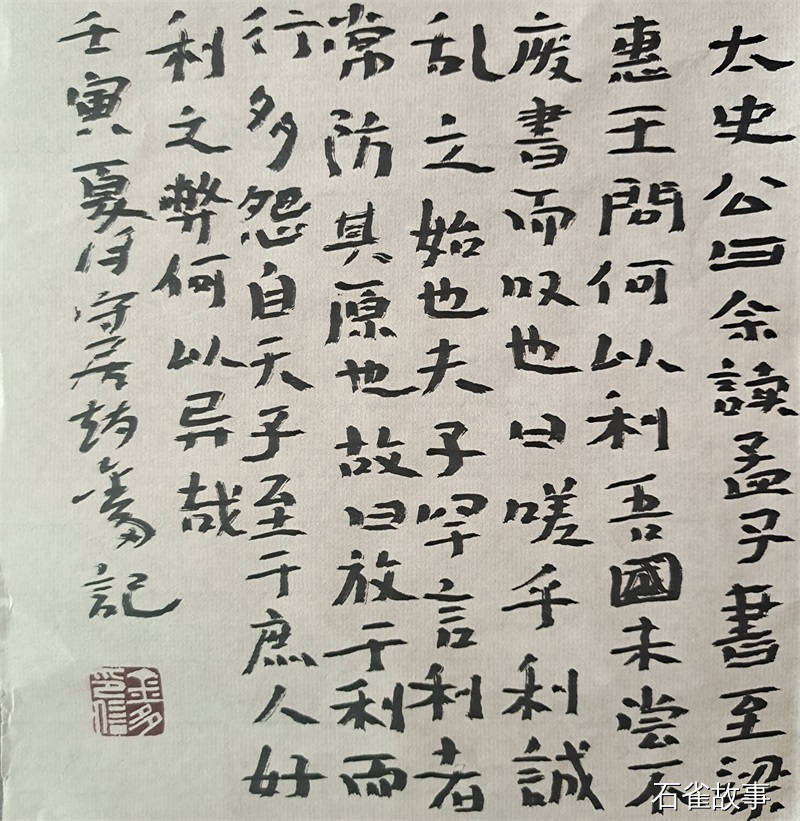 太史公曰余读孟子書至梁
惠王問何以利吾國未尝不
废書而叹也曰嗟乎利誠
乱之始也夫子罕言利者
常防其原也故曰放于利而
行多怨自天子至于庶人好
利之弊何以异哉
壬寅夏月守居 記
石雀故事